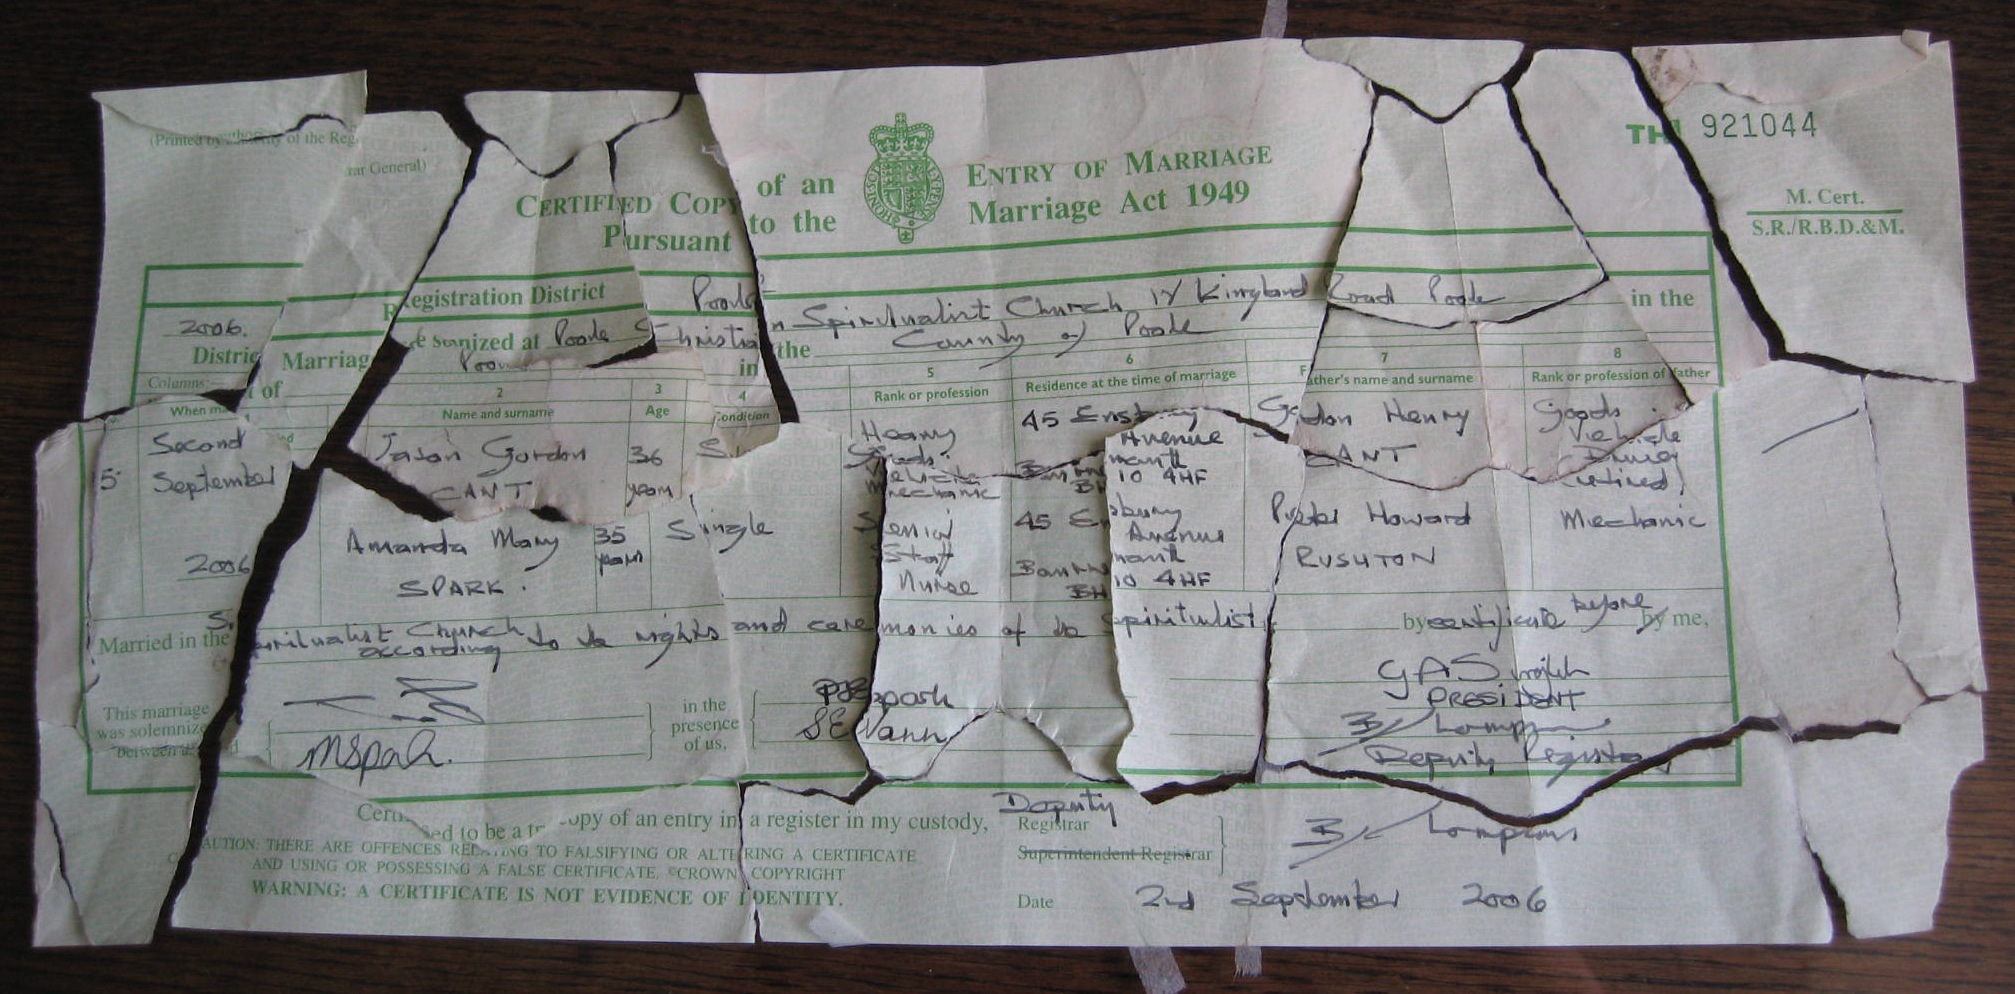 (Printed by authority of the Reg
rar General)
921044
CERTIFIED COPY of an ENTRY OF MARRIAGE
Pursuant to the Marriage Act 1949
M. Cert.
S.R./R.B.D.&M.
Registration District Poole
2006. Marriage solemnized at Poole Christian Spiritualist Church 14 Kingland Road Poole
District of Poole in the County of Poole in the
Columns:- 1 2 3 4 5 6 7 8
When married Name and surname Age Condition Rank or profession Residence at the time of marriage Father's name and surname Rank or profession of father
5 Second September 2006
Jason Gordon CANT 36 years S Heavy Goods Vehicle Mechanic 45 Ensbury Avenue Bournemouth BH10 4HF Gordon Henry CANT Goods Vehicle Driver (retired)
Amanda Mary SPARK. 35 years Single Senior Staff Nurse 45 Ensbury Avenue Bournemouth BH10 4HF Peter Howard RUSHTON Mechanic
Married in the Spiritualist Church according to the rights and ceremonies of the Spiritulist by certificate before by me,
This marriage was solemnized between us, in the presence of us,
PRESIDENT
Deputy Registrar
Certified to be a true copy of an entry in a register in my custody, Deputy Registrar
Superintendent Registrar
CAUTION: THERE ARE OFFENCES RELATING TO FALSIFYING OR ALTERING A CERTIFICATE
AND USING OR POSSESSING A FALSE CERTIFICATE. ©CROWN COPYRIGHT
WARNING: A CERTIFICATE IS NOT EVIDENCE OF IDENTITY.
Date 2nd September 2006